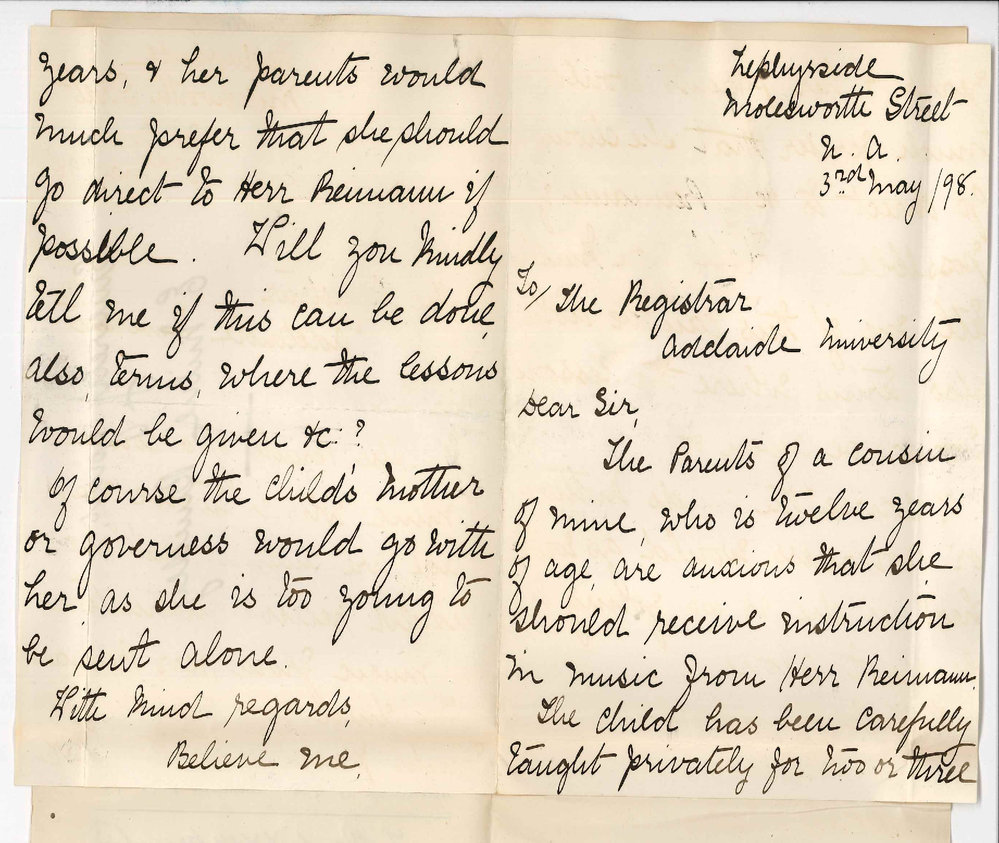 Zephyrside
Molesworth Street
N. A.
3rd May /98.
To/ The Registrar
Adelaide University
Dear Sir,
The Parents of a cousin
of mine, who is twelve years
of age, are anxious that she
should receive instruction
in music from Herr Reimann.
The child has been carefully
taught privately for two or three
years, & her parents would
much prefer that she should
go direct to Herr Reimann if
possible. Will you kindly
tell me if this can be done,
also, terms, where the lessons
would be given &c ?
Of course the child's mother
or governess would go with
her, as she is too young to
be sent alone.
With kind regards,
Believe me,